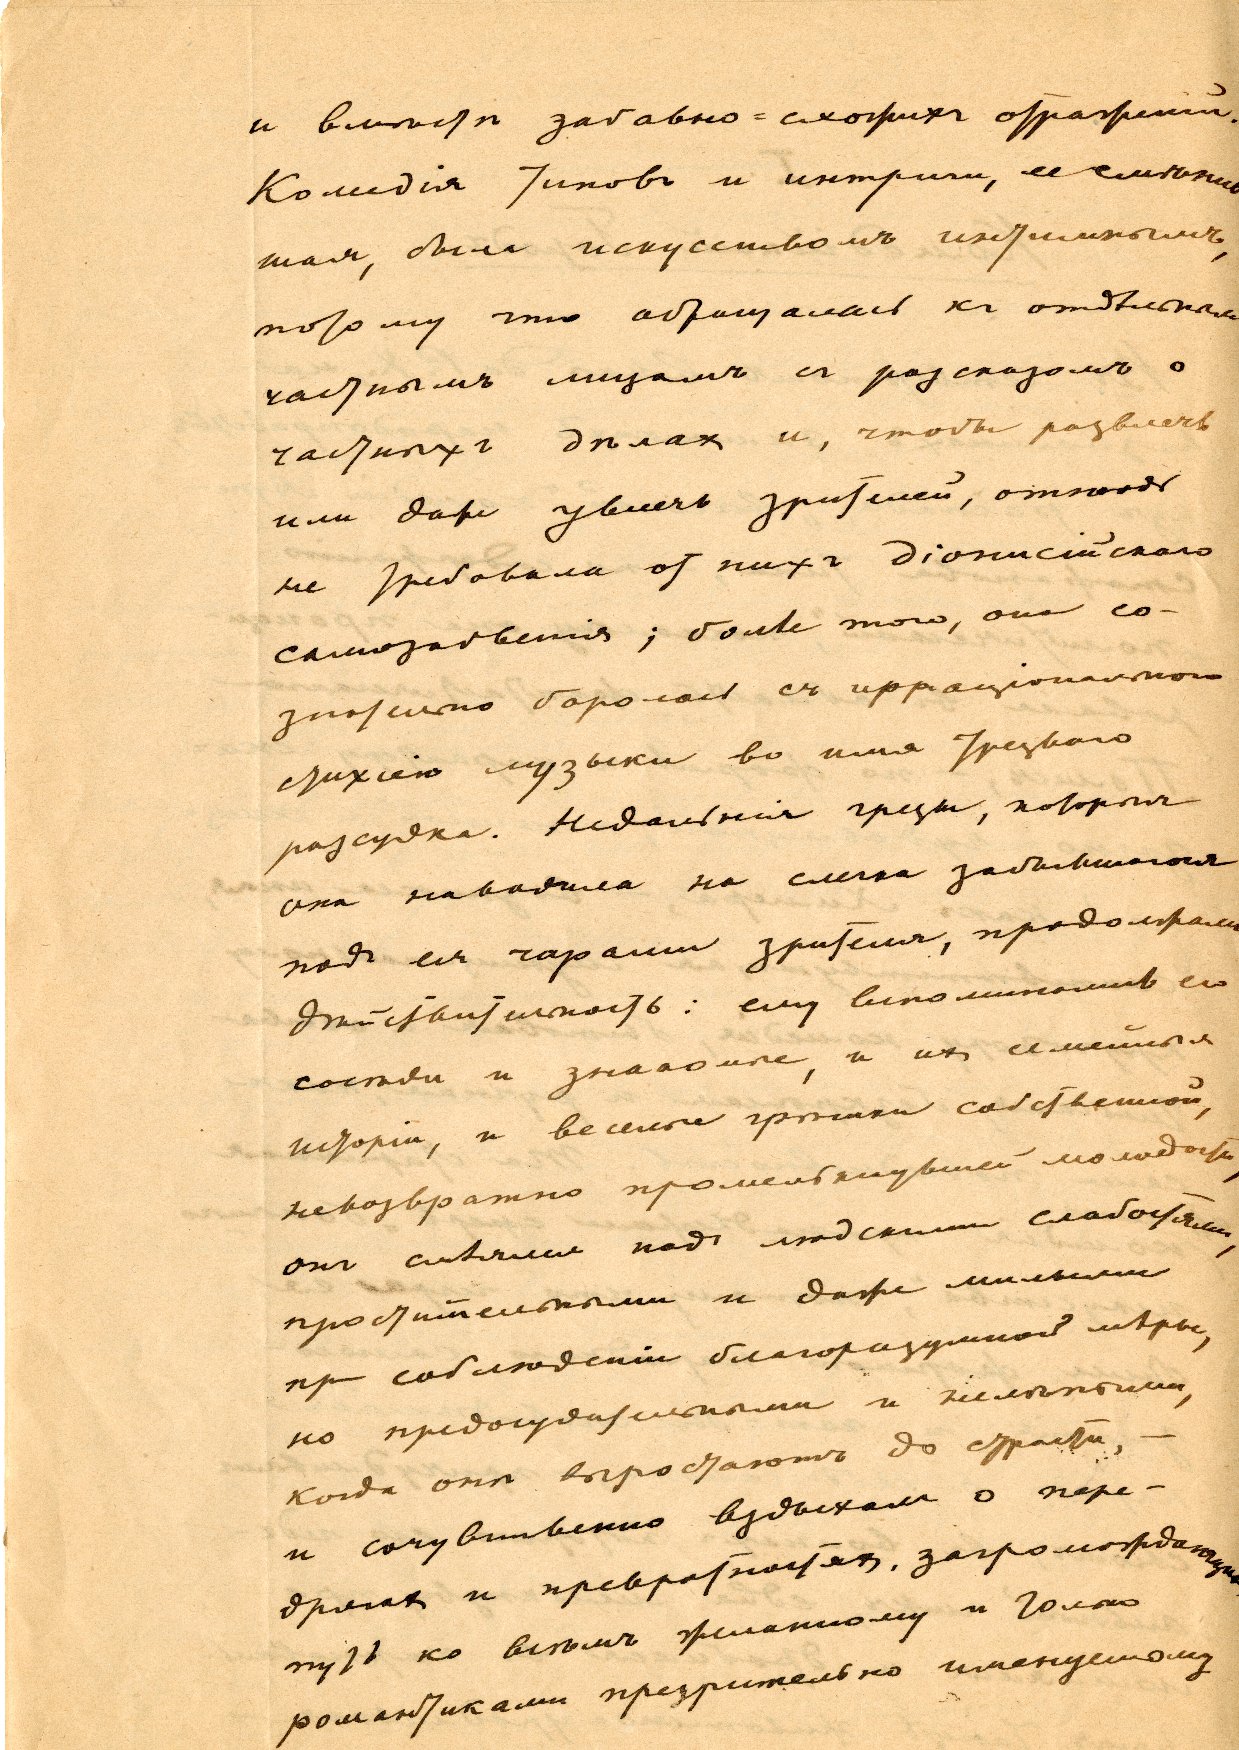 и вмѣстѣ забавно=схожихъ отраженій.
Комедія типовъ и интриги, ее смѣнив
шая, была искусствомъ интимнымъ,
потому что обращалась къ отдѣльнымъ
частнымъ лицамъ съ разсказомъ о
частныхъ дѣлах и, чтобы развлечь
или даже увлечь зрителей, отнюдь
не требовала от нихъ діонисійскаго
самозабвенія; болѣе того, она со-
знательно боролась съ ирраціональною
стихіею музыки во имя трезваго
разсудка. Недальнія грезы, которыя
она наводила на слегка забывшагося
подъ ея чарами зрителя, продолжали
дѣйствительность: ему вспоминались его
сосѣди и знакомые, и их семейныя
исторіи, и веселые грѣшки собственной,
невозвратно промелькнувшей молодости,
онъ смѣялся надъ людскими слабостями,
простительными и даже милыми
при соблюденіи благоразумной мѣры,
но предосудительными и нелѣпыми,
когда онѣ выростаютъ до страсти, —
и сочувственно вздыхалъ о пере-
дрягах и превратностях, загромождающих
путь ко всѣмъ желанному и только
романтиками презрительно именуемому